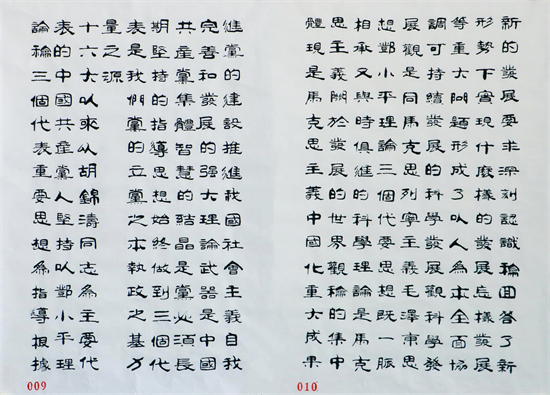 進黨的建設推進我國社會主義自我
完善和發展的強大理論武器是中國
共產黨集體智慧的結晶是黨必須長
期堅持的指導思想始終做到三個代
表是我們黨的立黨之本執政之基力
量之源
十六大以來以胡錦濤同志為主要代
表的中國共產黨人堅持以鄧小平理
論和三個代表重要思想為指導根據
009
新的發展要求深刻認識和回答了新
形勢下實現什麼樣的發展怎樣發展
等重大問題形成了以人為本全面協
調可持續發展的科學發展觀科學發
展觀是同馬克思列寧主義毛澤東思
想鄧小平理論三個代表思想既一脈
相承又與時俱進的科學理論是馬克
思主義關於發展的世界觀論的集中
體現是馬克思主義中國化重大成果
010